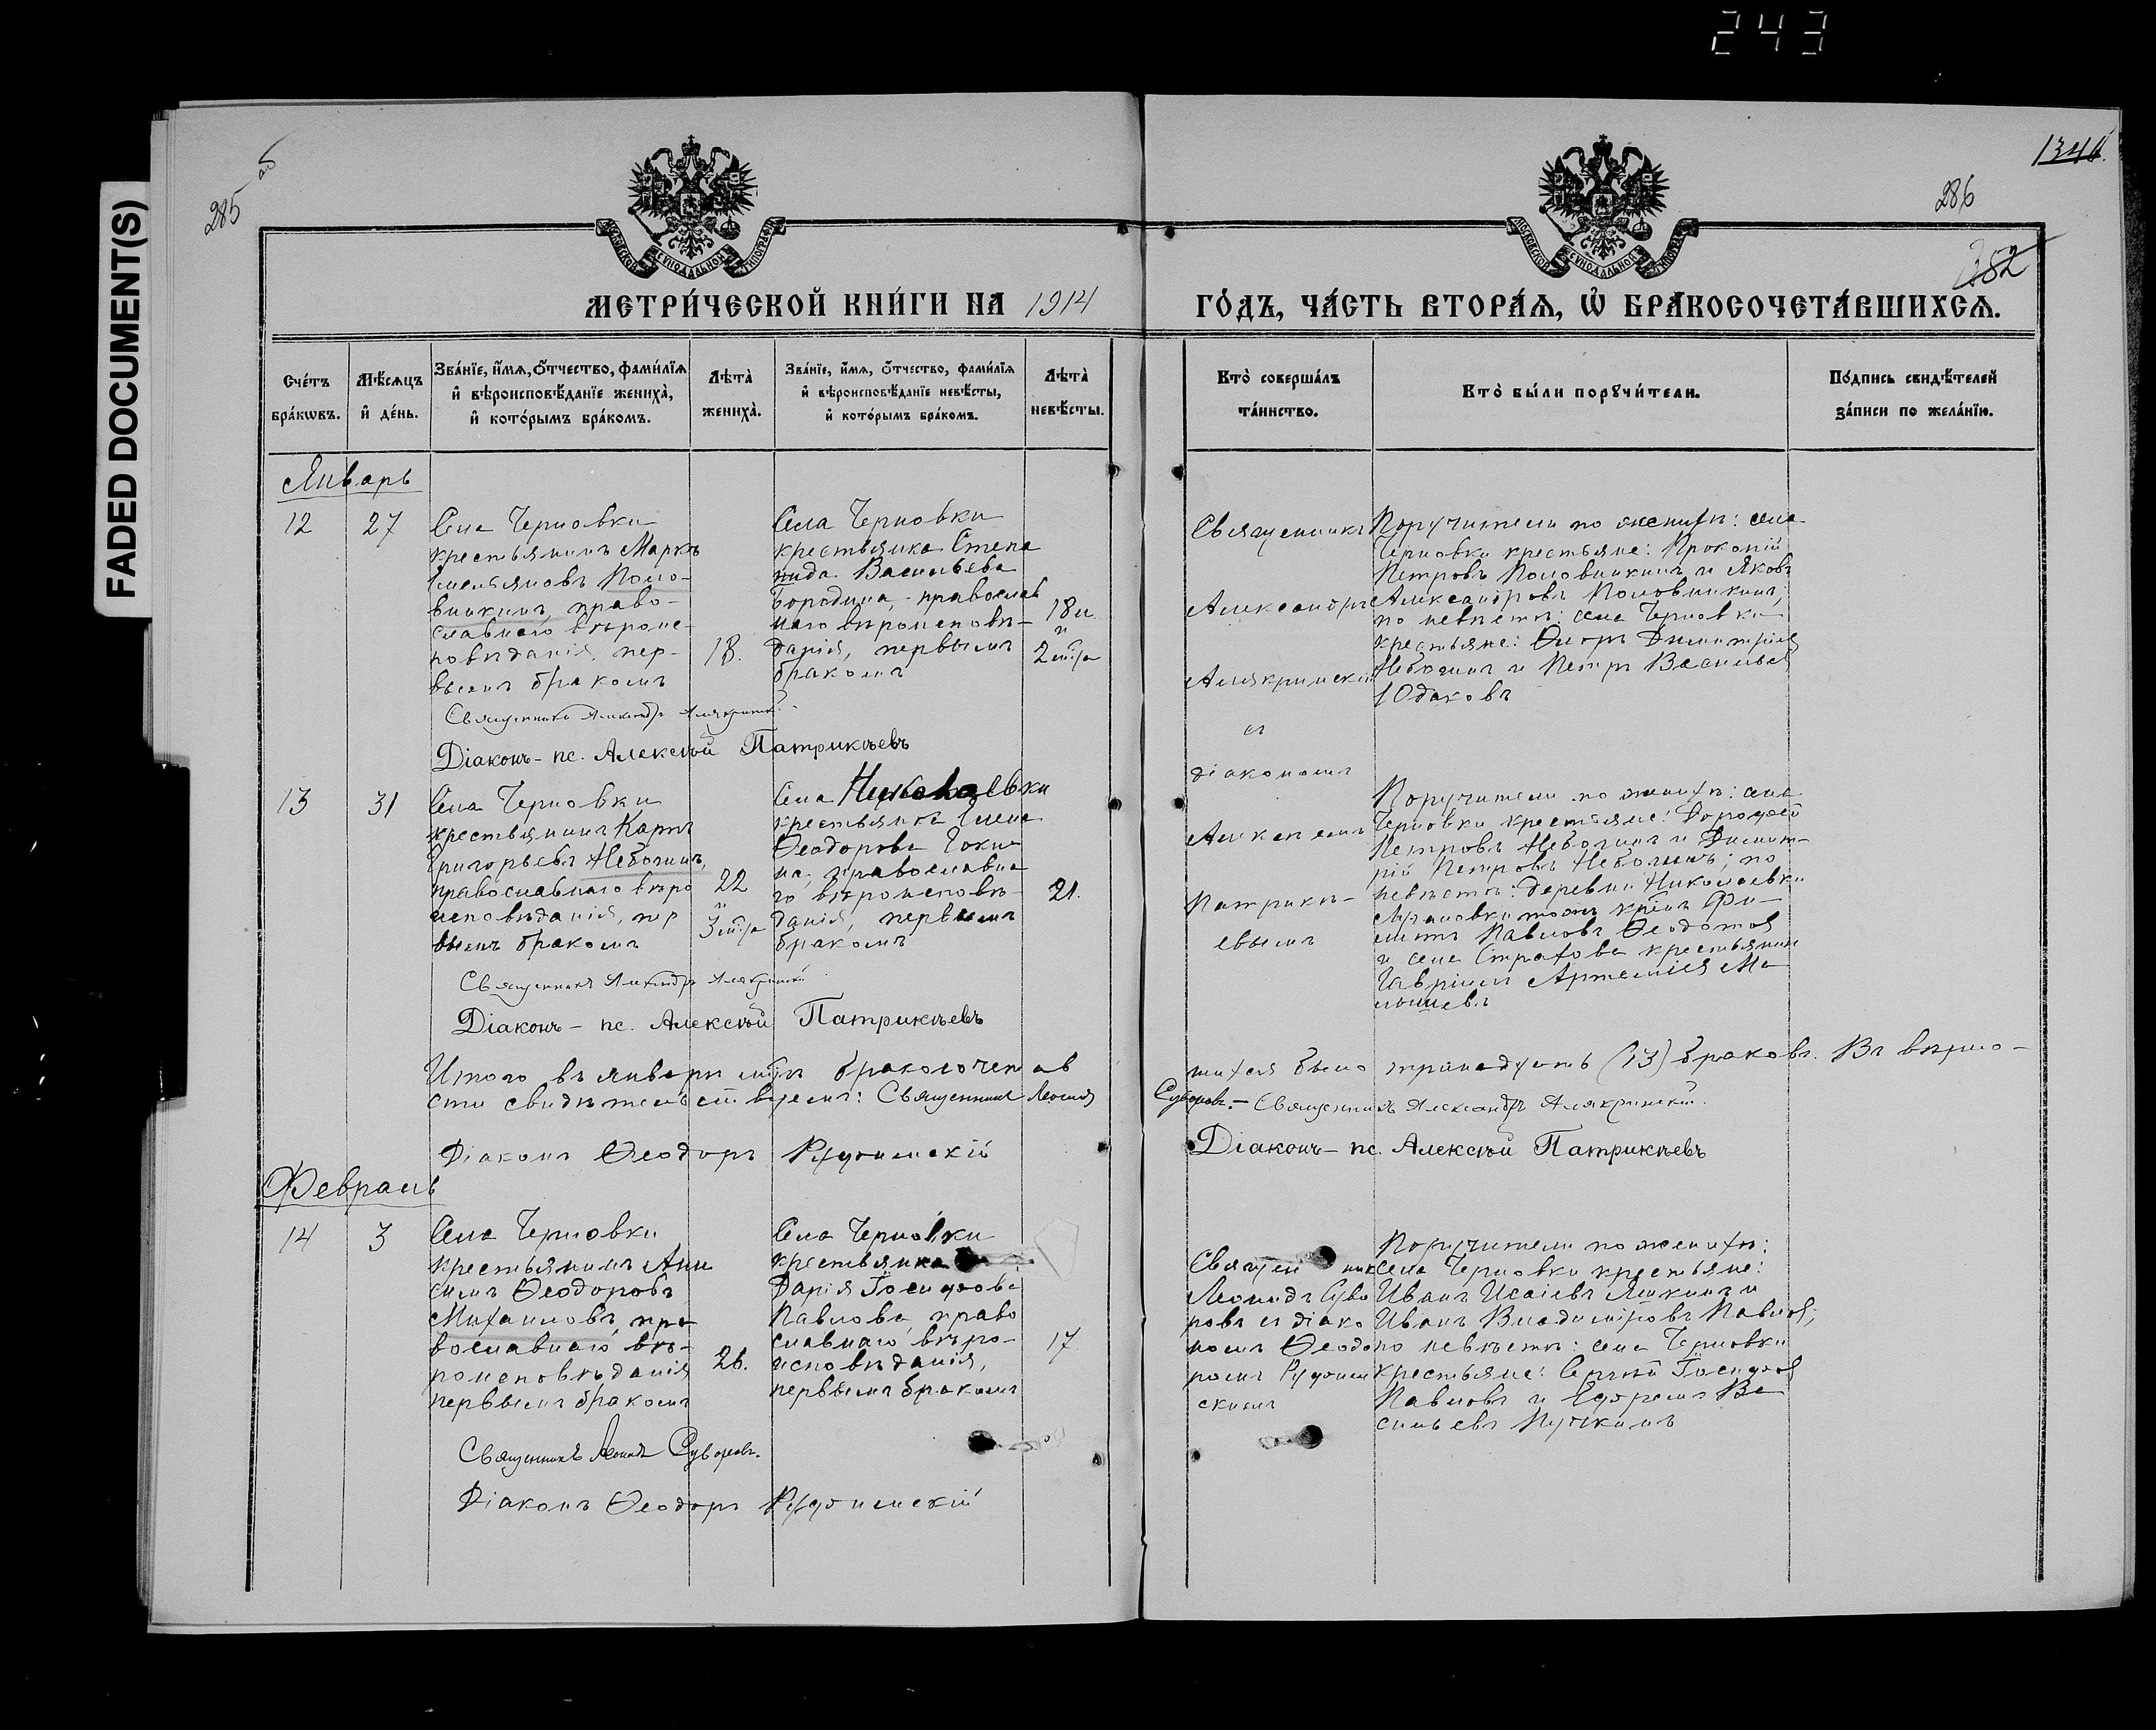 243
FADED DOCUMENT(S)
285
об
1344.
286
382
МОСКОВСКОЙ СѴНОДАЛЬНОЙ ТИПОГРАФІИ
МОСКОВСКОЙ СѴНОДАЛЬНОЙ ТИПОГРАФІИ
МЕТРИ́ЧЕСКОЙ КНИ́ГИ НА 1914
ГО́ДЪ, ЧА́СТЬ ВТОРА́Я, Ѡ҆ БРАКОСОЧЕТА́ВШИХСЯ.
Сче́тъ бра́кѡвъ.
Мѣ́сяцъ и҆ де́нь.
Зва́нїе, и҆́мя, ѻ҆́тчество, фами́лїя и҆ вѣроисповѣ́данїе жениха̀, и҆ кото́рымъ бра́комъ.
Лѣта̀ жениха̀.
Зва́нїе, и҆́мя, ѻ҆́тчество, фами́лїя и҆ вѣроисповѣ́данїе невѣ́сты, и҆ кото́рымъ бра́комъ.
Лѣта̀ невѣ́сты.
Кто̀ соверша́лъ та́инство.
Кто̀ бы́ли порꙋчи́тели.
По́дпись свидѣ́телей за́писи по жела́нїю.
Январь
12
27
Села Черновки
крестьянинъ Маркъ
Емельяновъ Поло-
винкинъ, право-
славнаго вѣроис-
повѣданія, пер-
вымъ бракомъ
18.
Села Черновки
крестьянка Степа
нида Васильева
Бородина, православ
наго вѣроисповѣ-
данія, первымъ
бракомъ
18 л.
и
2 м-ца
Священникъ
Александръ
Алякринскій
съ
діакономъ
Алексѣемъ
Патрикѣ-
евымъ
Поручители по женихѣ: села
Черновки крестьяне: Прокопій
Петровъ Половинкинъ и Яковъ
Александровъ Половинкинъ;
по невѣстѣ: села Черновки
крестьяне: Ѳедоръ Димитріев
Неболинъ и Петръ Васильев
Юдаковъ
Священникъ Александръ Алякринскій
Діаконъ - пс. Алексѣй Патрикѣевъ
13
31
Села Черновки
крестьянинъ Карпъ
Григорьевъ Неболинъ,
православнаго вѣро
исповѣданія, пер
вымъ бракомъ
22
и
3 м-ца
Села Николаевки
крестьянка Елена
Ѳеодорова
на, православна
го вѣроисповѣ-
данія, первымъ
бракомъ
21.
Поручители по женихѣ: села
Черновки крестьяне: Дороѳей
Петровъ Неболинъ и Димит-
рій Петровъ Неболинъ; по
невѣстѣ: деревни Николаевки
Павловъ Ѳедотов
и села Страхова крестьянин
Гавріилъ Артеміев Ма
Священникъ Александръ Алякринскій
Діаконъ - пс. Алексѣй Патрикѣевъ
Итого въ январѣ м-цѣ бракосочетав
шихся было тринадцать (13) браковъ. Въ вѣрно-
сти свидѣтельствуемъ: Священникъ Леонид
Суворовъ. - Священникъ Александръ Алякринскій.
Діаконъ Ѳеодоръ
Діаконъ - пс. Алексѣй Патрикѣевъ
Февраль
14
3
Села Черновки
крестьянинъ Ани
симъ Ѳеодоровъ
Михаиловъ, пра
вославнаго вѣ-
роисповѣданія
первымъ бракомъ
26.
Села Черновки
крестьянка
Дарія Іосифова
Павлова, право
славнаго вѣро-
исповѣданія,
первымъ бракомъ
17
Священникъ
Леонидъ Суво
ровъ съ діако
номъ Ѳеодо
ромъ
скимъ
Поручители по женихѣ:
села Черновки крестьяне:
Иванъ Исаіевъ и
Иванъ Владиміровъ Павлов;
по невѣстѣ: села Черновки
крестьяне: Сергѣй Іосифов
Павловъ и Ефремъ Ва
сильевъ Пучкинъ
Священникъ Леонидъ Суворовъ.
Діаконъ Ѳеодоръ